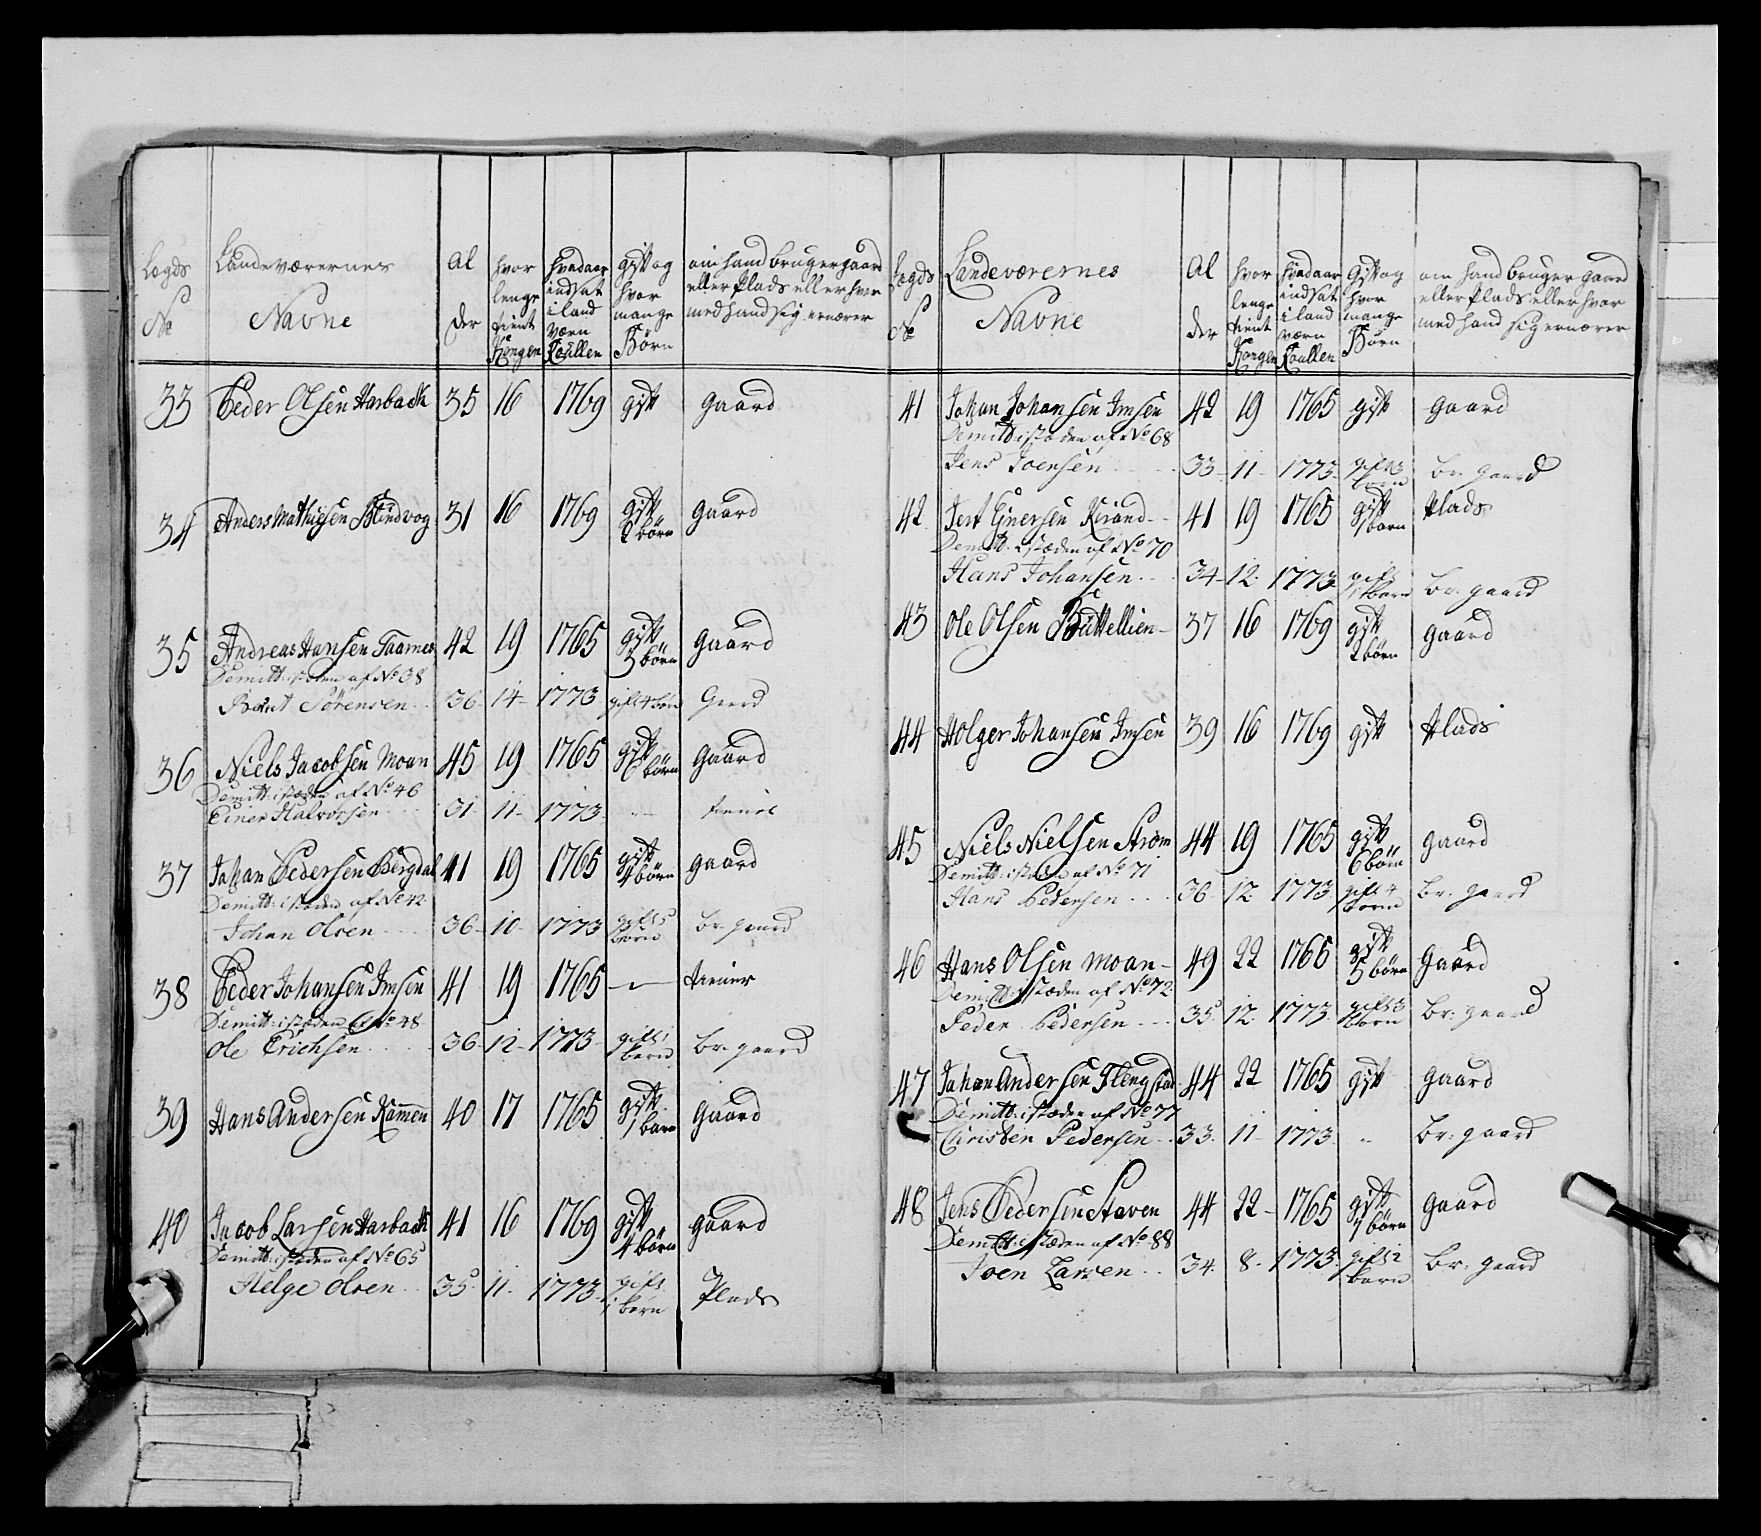 Legds No
Landeværernes Navne
Al der
hvor lenge tient Kongen
hvadaar indsat i land værn Roullen
Gift og hvor mange Börn
om hand bruger gaard eller Plads eller hvor med hand sig ernærer
33 Peder Olsen Harbach 35 16 1769 gift Gaard
34 Anders Mathisen Blindvog 31 16 1769 gift 2 börn Gaard
35 Andreas Hansen Taarnes 42 19 1765 gift 3 börn Gaard
Demitt: i stæden af No 38
Bernt Sörensen 36 14 1773 gift 4 börn Gaard
36 Niels Jacobsen Moan 45 19 1765 gift 6 börn Gaard
Demitt: i stæden af No 46
Einer Halvorsen 31 11 1773 tienner
37 Johan Pedersen Bergdal 41 19 1765 gift 4 börn gaard
Demitt: i stæden af No 42
Johan Olsen 36 10 1773 gift 5 börn br: gaard
38 Peder Johansen Imsen 41 19 1765 — tienner
Demitt: i stæden af No 48
Ole Erichsen 36 12 1773 gift 1 barn br: gaard
39 Hans Andersen Ramen 40 17 1765 gift 1 barn Gaard
40 Jacob Larsen Harbach 41 16 1769 gift 4 börn gaard
Demitt: i stæden af No 65
Helge Olsen 35 11 1773 gift 1 barn Plads
Legds No
Landeværernes Navne
Al der
hvor lenge tient Kongen
hvadaar indsat i land værn Roullen
Gift og hvor mange Börn
om hand bruger gaard eller Plads eller hvor med hand sig ernærer
41 Johan Johansen Imsen 42 19 1765 gift Gaard
Demitt: i stæden af No 68
Jens Joensen 33 11 1773 gift 3 börn br: gaard
42 Einersen 41 19 1765 gift 1 barn Plads
Demitt: i stæden af No 70
Hans Johansen 34 12 1773 gift 1 barn br: gaard
43 Ole Olsen 37 16 1769 gift 2 börn gaard
44 Holger Johansen Imsen 39 16 1769 gift Plads
45 Niels Nielsen Ström 44 19 1765 gift 6 börn gaard
Demitt: i stæden af No 71
Hans Pedersen 36 12 1773 gift 4 börn br: gaard
46 Hans Olsen Moan 49 22 1765 gift 5 börn Gaard
Demitt: i stæden af No 72
Peder Pedersen 35 12 1773 gift 3 börn br: gaard
47 Johan Andersen Flengstad 44 22 1765 gift gaard
Demitt: i stæden af No 77
Christen Pedersen 33 11 1773 br: gaard
48 Jens Pedersen Staven 44 22 1765 gift 1 börn gaard
Demitt: i stæden af No 88
Joen Larsen 34 8 1773 gift 2 barn br: gaard